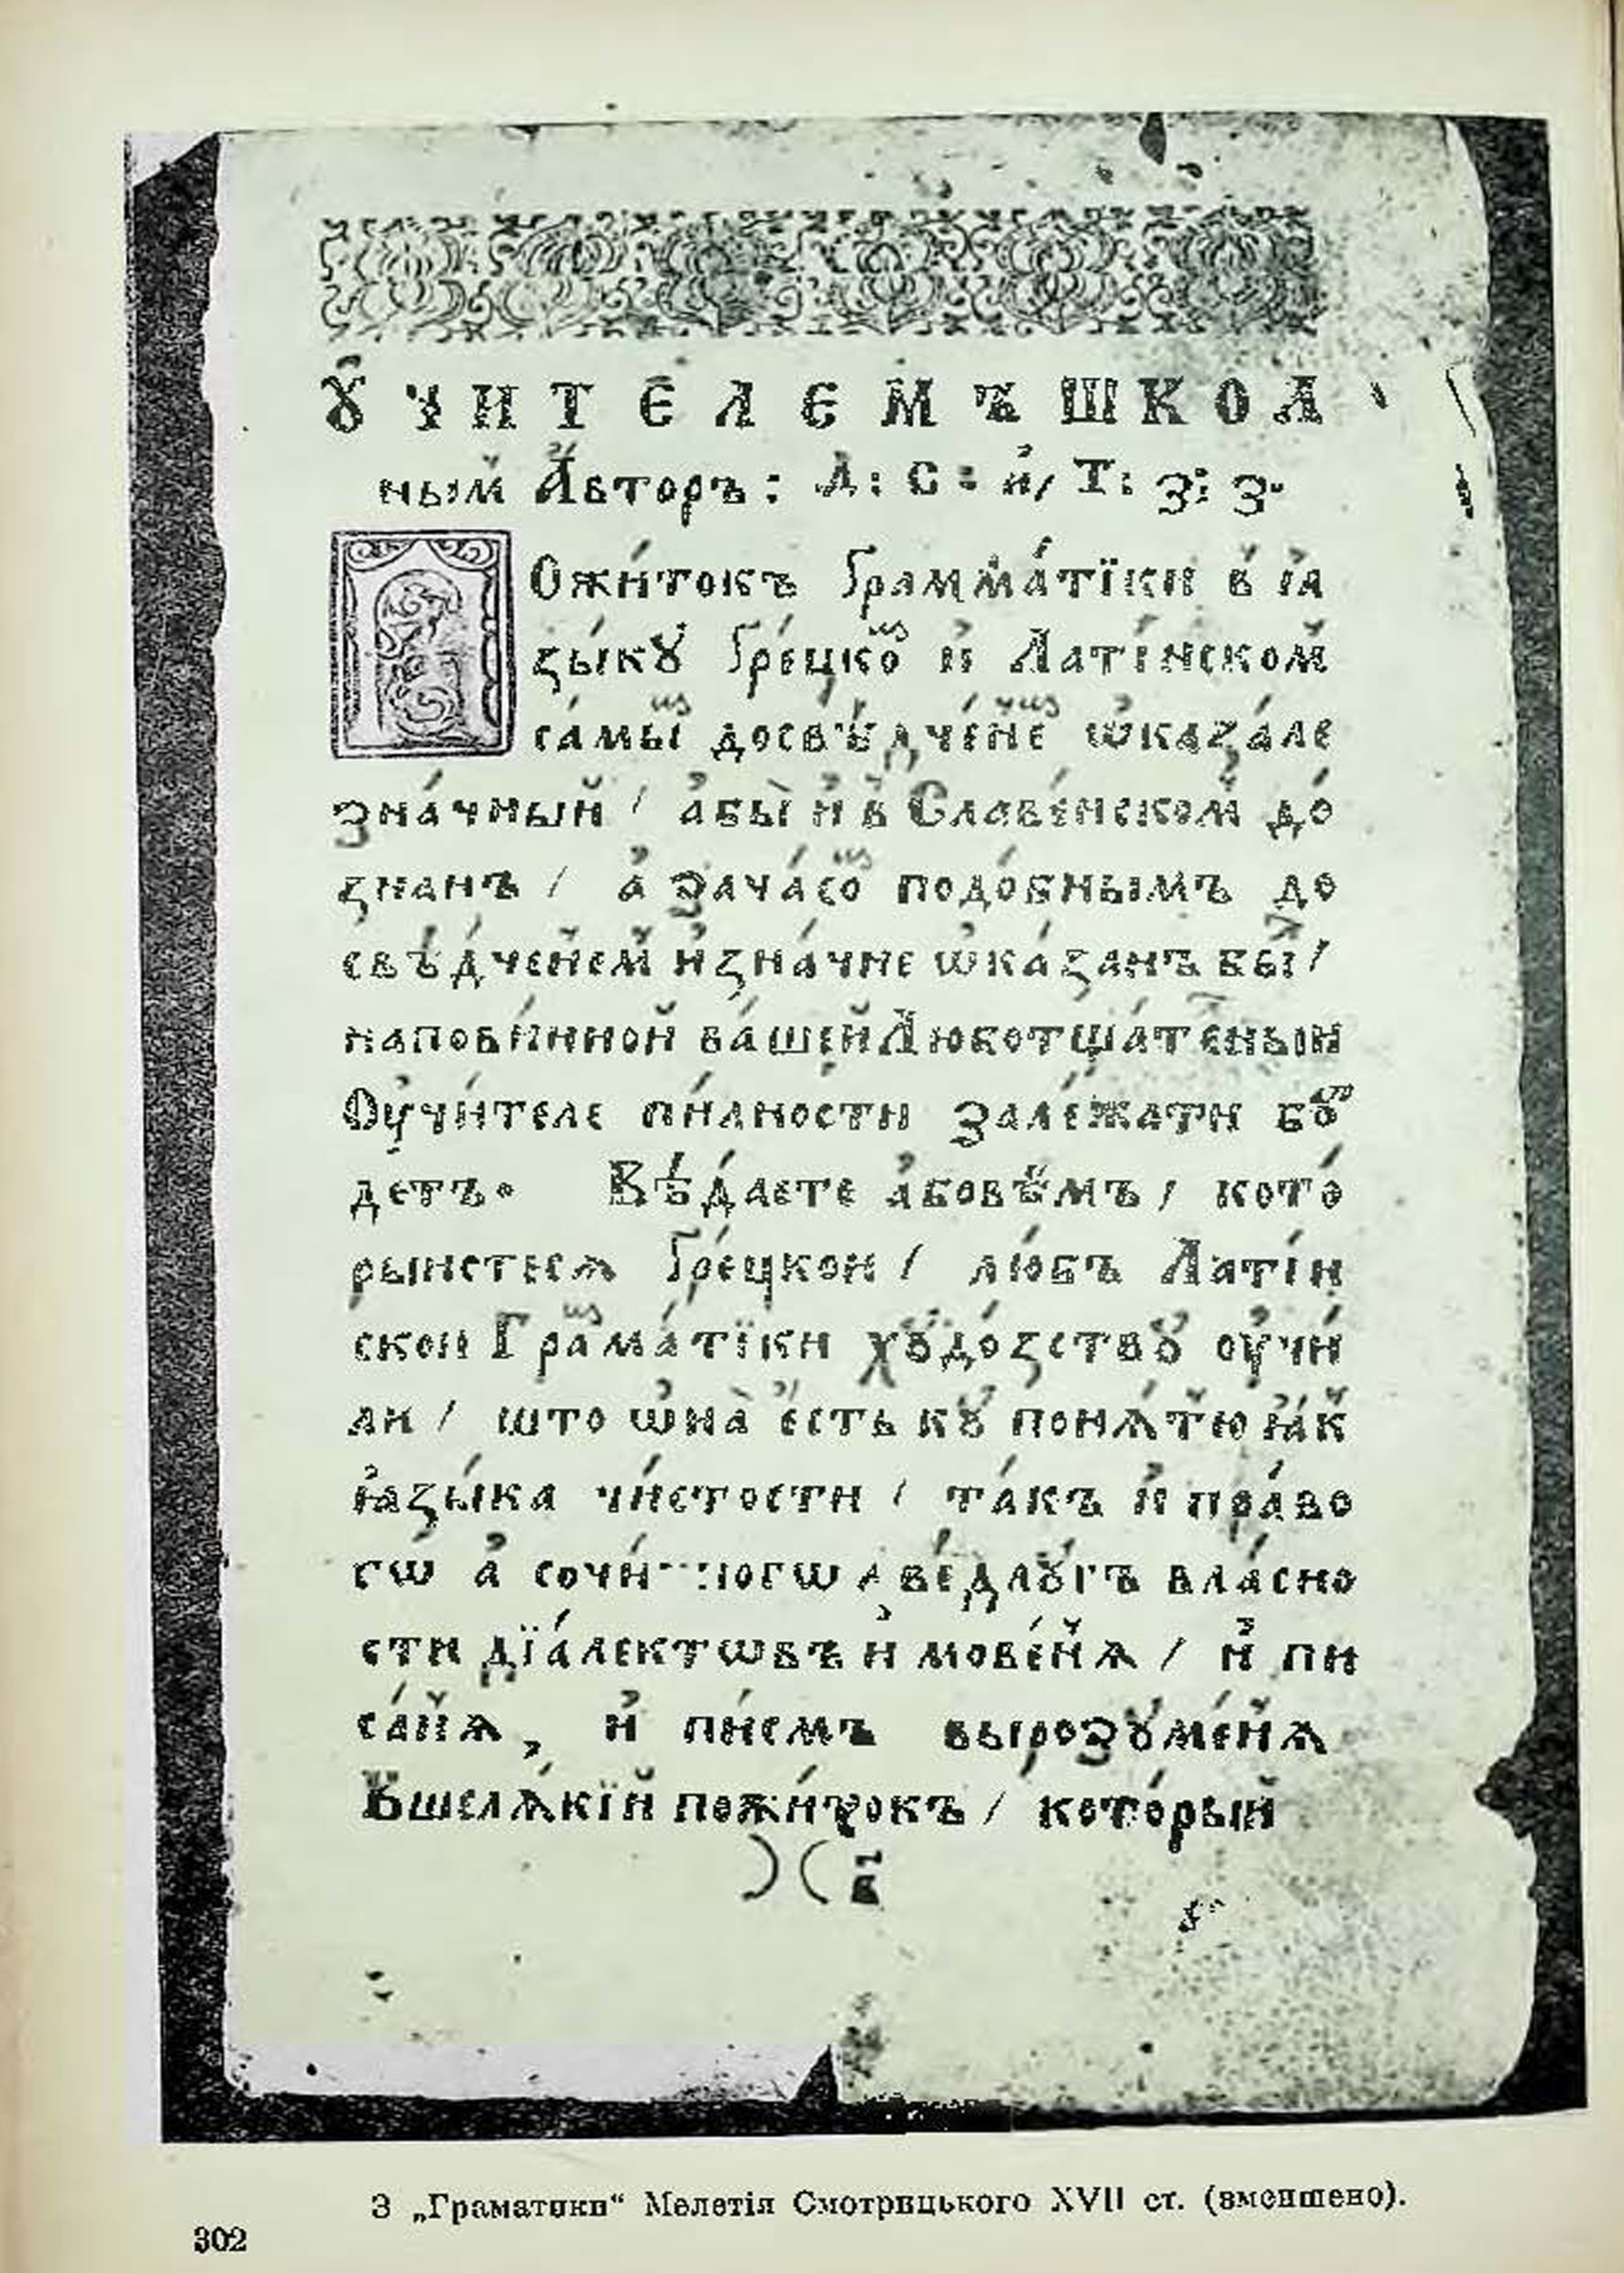 ꙋ҆чителемъ школ
ным̾ А҆вторъ: Л: С: и҆/ Т: З: З.
Ожи́токъ Грамма́тїки в̾ ꙗ
зы́кꙋ Гре́цко и҆ Лати́нском̾
са́мы досвѣ́дчене ѡ҆каза́ле
зна́чный / а҆бы̀ и҆ в̾ Славе́нском̾ до́
знанъ / а҆ зача́со подо́бнымъ до
свѣ́дчен̾ем̾ и҆ зна́чне ѡ҆ка́занъ бы /
наповинной ва́шей Люботща́те́ныи
Оу҆чи́теле пи́лности зале́жати бꙋ
детъ. Вѣ́даете а҆бовѣ́мъ / кото́
рыистеся Гре́цкои / лю́бъ Лати́н
скои Грама́тїки хꙋдо́зствꙋ оу҆чи́
ли / што ѡ҆на̀ е҆сть кꙋ поня́т̾ю ꙗ҆́к̾
ꙗ҆зы́ка чи́стости / та́къ и҆ пра́во
гѡ а҆ сочи́ ногѡ ве́длꙋгъ вла́сно
сти дїа́лектѡвъ и҆ мове́н̾я / и҆ пи
са́н̾я, и҆ пи́смъ вырозꙋме́н̾я
Вшеля́кїй пожи́токъ / кото́рый
)( в҃
З „Граматики“ Мелетія Смотрицького XVII ст. (зменшено).
302